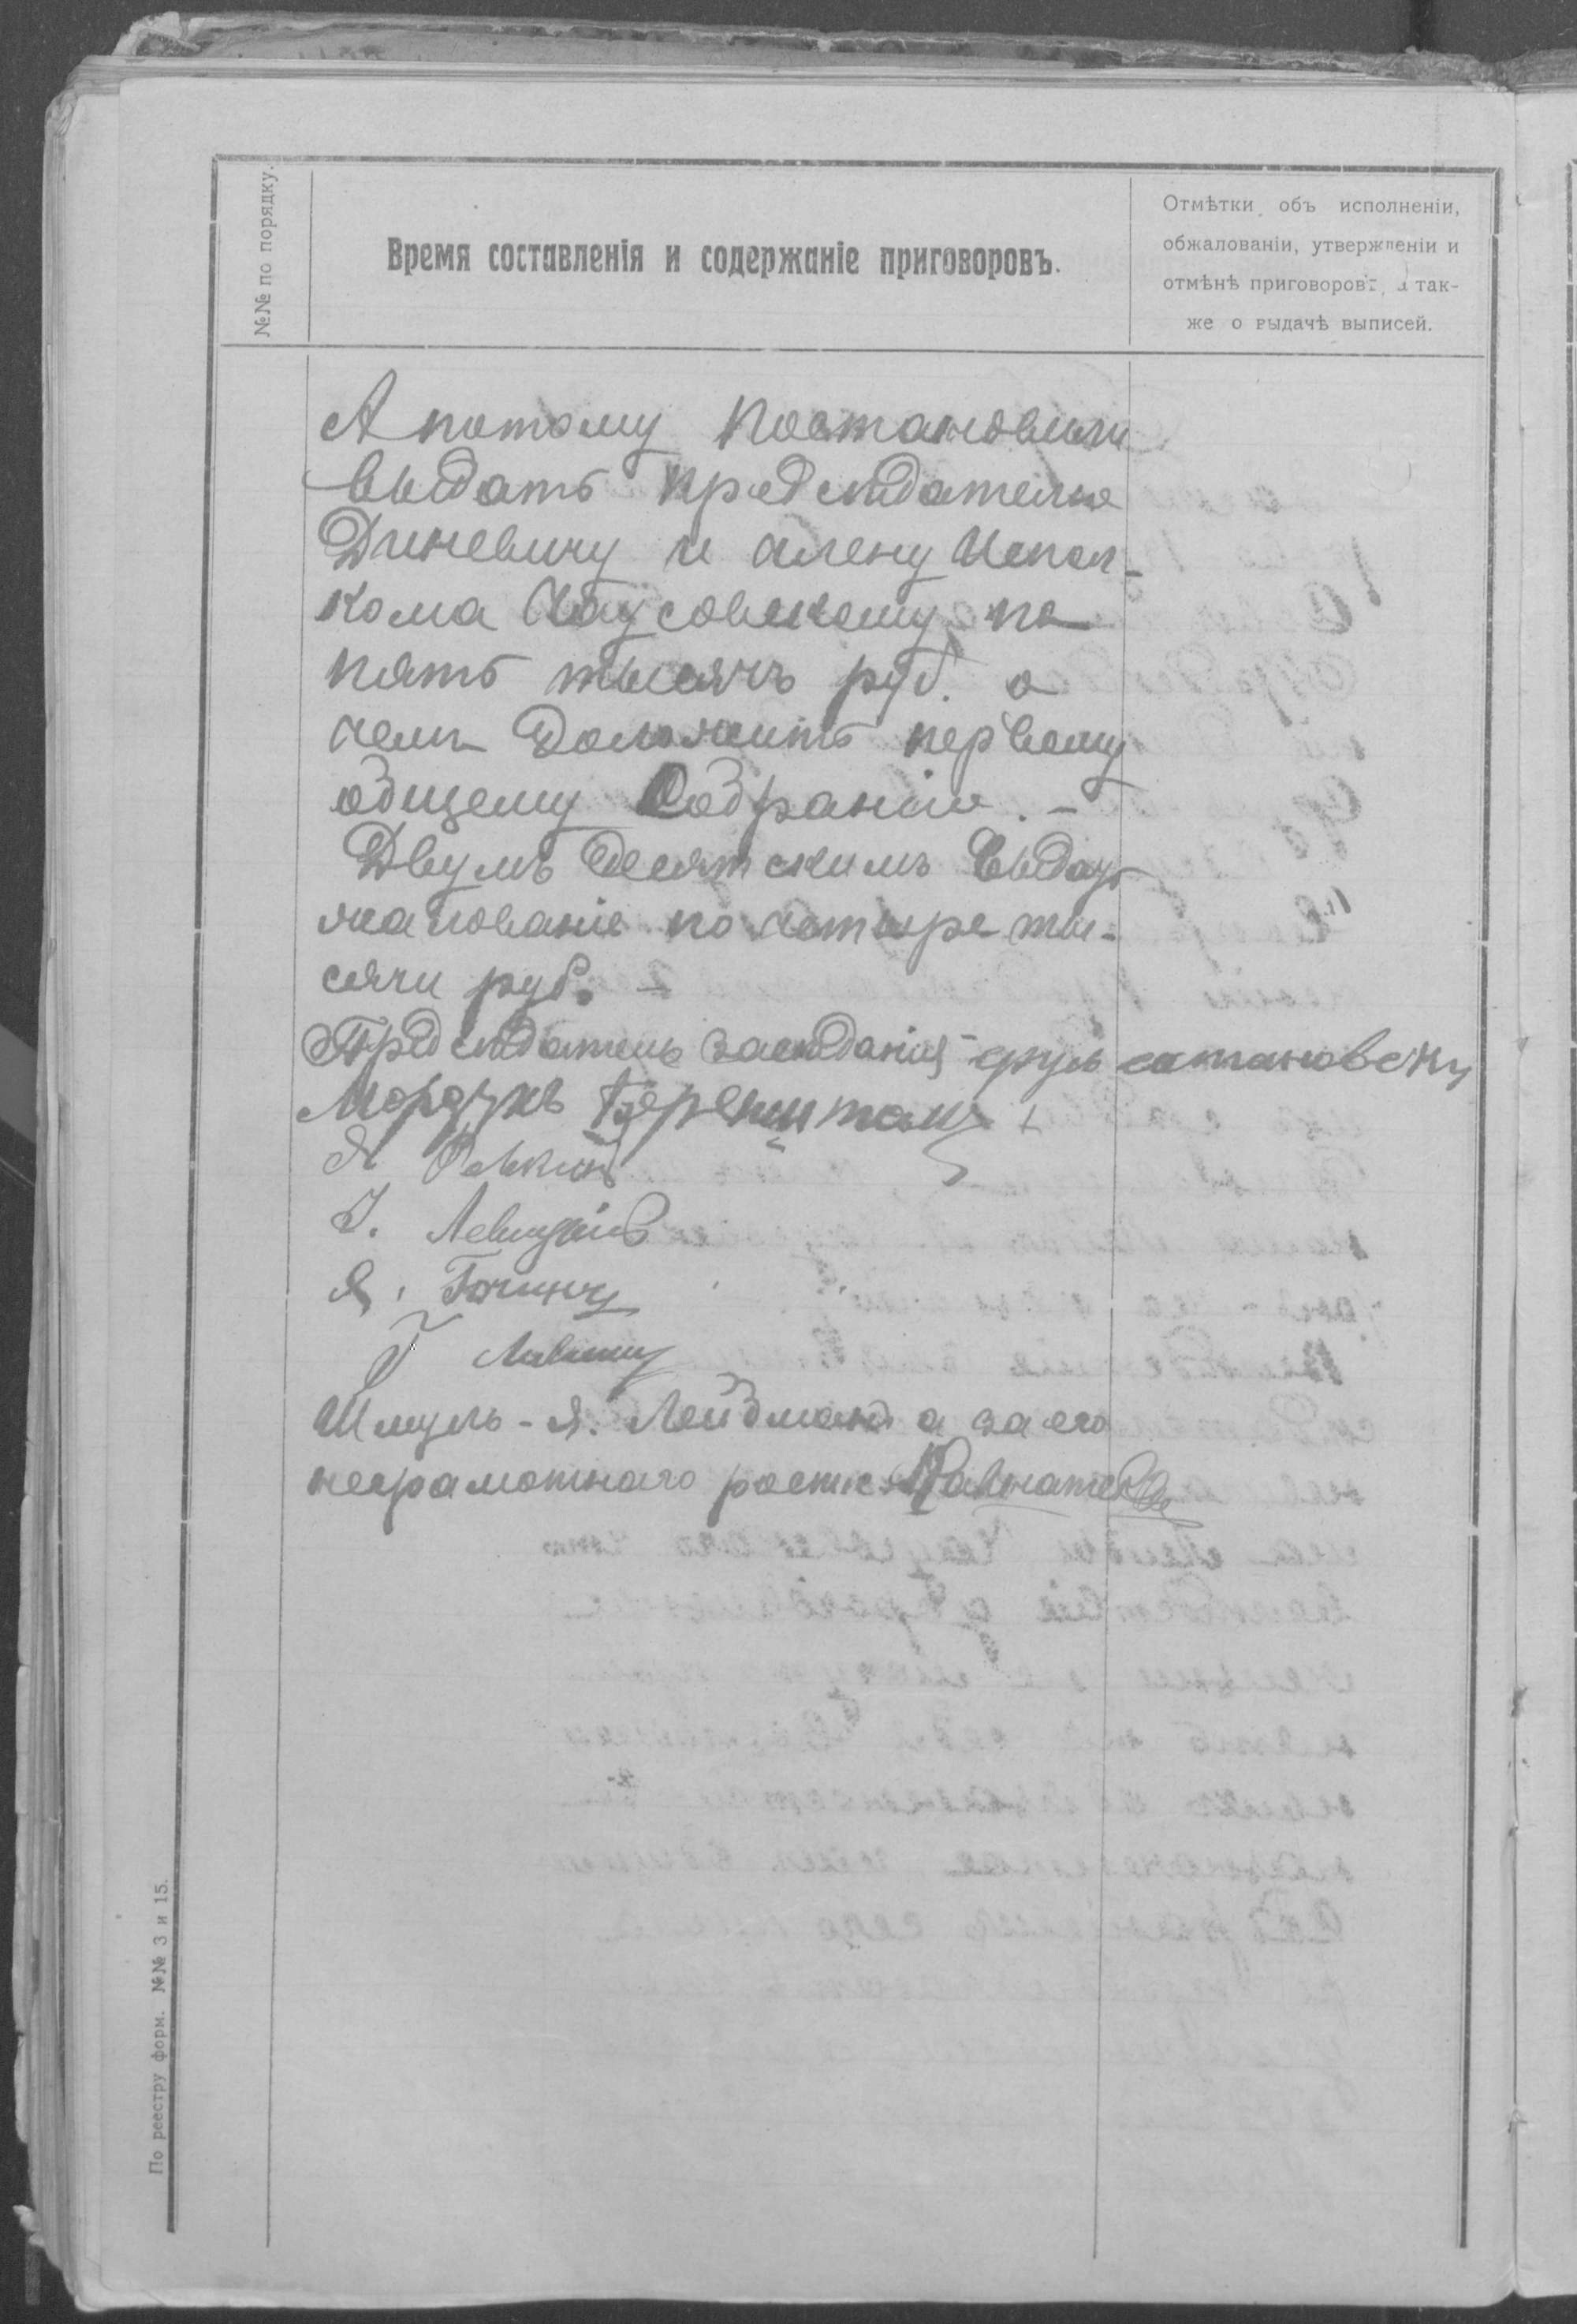 №№ по порядку.
Время составленія и содержаніе приговоровъ.
Отмѣтки объ исполненіи,
обжалованіи, утвержденіи и
отмѣнѣ приговоровъ, а так-
же о выдачѣ выписей.
А потому Постановили
выдать предсѣдателю
Диневичу и члену Испол-
кома Чаусовскому по
пять тысячъ руб. о
чемъ доложить первому
общему Собранію. -
Двумъ десятскимъ выдать
жалованіе по четыре ты-
сячи руб. -
Предсѣдатель засѣданія
Мордухъ
Я Ривкинъ
Я.
Шмуль - Я. Лейдманъ а за его
неграмотнаго роспис.
По реестру форм. №№ 3 и 15.